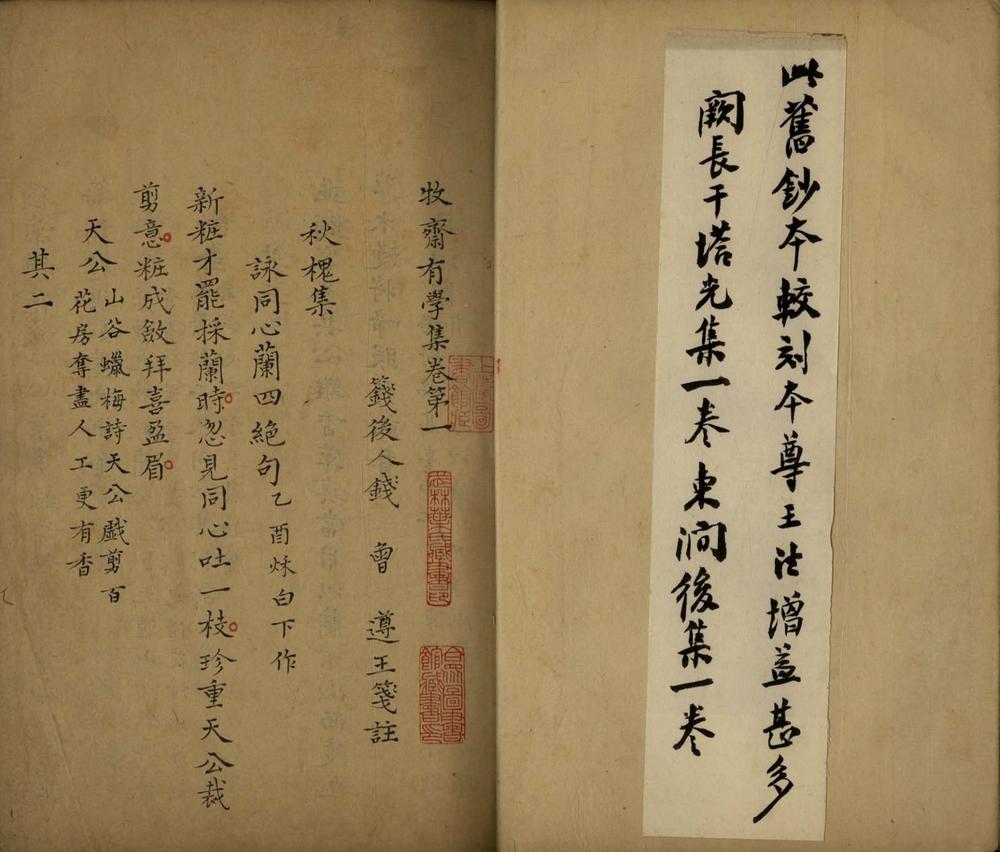 此舊鈔本較刻本尊王注增益甚多
闕長干塔光集一卷東澗後集一卷
牧齋有學集卷第一
籛後人錢 曾 遵王箋註
秋槐集
詠同心蘭四絕句乙酉秌白下作
新粧才罷採蘭時忽見同心吐一枝珍重天公裁
剪意粧成斂拜喜盈眉
天公
山谷蠟梅詩天公戲剪百
花房奪盡人工更有香
其二
武林葉氏藏書印
合眾圖書
館藏書印
上海圖
書館藏